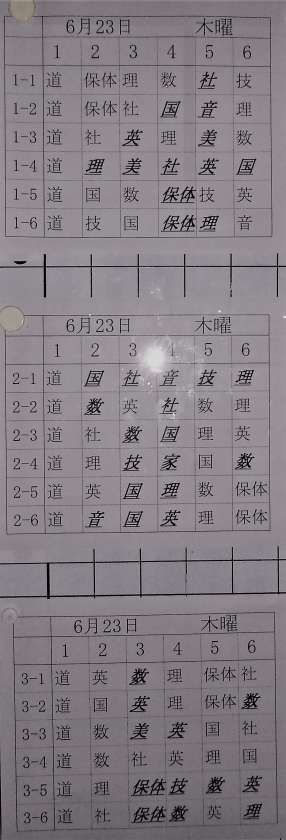 6月23日 木曜
1 2 3 4 5 6
1-1 道 保体 理 数 社 技
1-2 道 保体 社 国 音 理
1-3 道 社 英 理 美 数
1-4 道 理 美 社 英 国
1-5 道 国 数 保体 技 英
1-6 道 技 国 保体 理 音
6月23日 木曜
1 2 3 4 5 6
2-1 道 国 社 音 技 理
2-2 道 数 英 社 数 理
2-3 道 社 数 国 理 英
2-4 道 理 技 家 国 数
2-5 道 英 国 理 数 保体
2-6 道 音 国 英 理 保体
6月23日 木曜
1 2 3 4 5 6
3-1 道 英 数 理 保体 社
3-2 道 国 英 理 保体 数
3-3 道 数 美 英 国 社
3-4 道 数 社 英 理 国
3-5 道 理 保体 技 数 英
3-6 道 社 保体 数 英 理